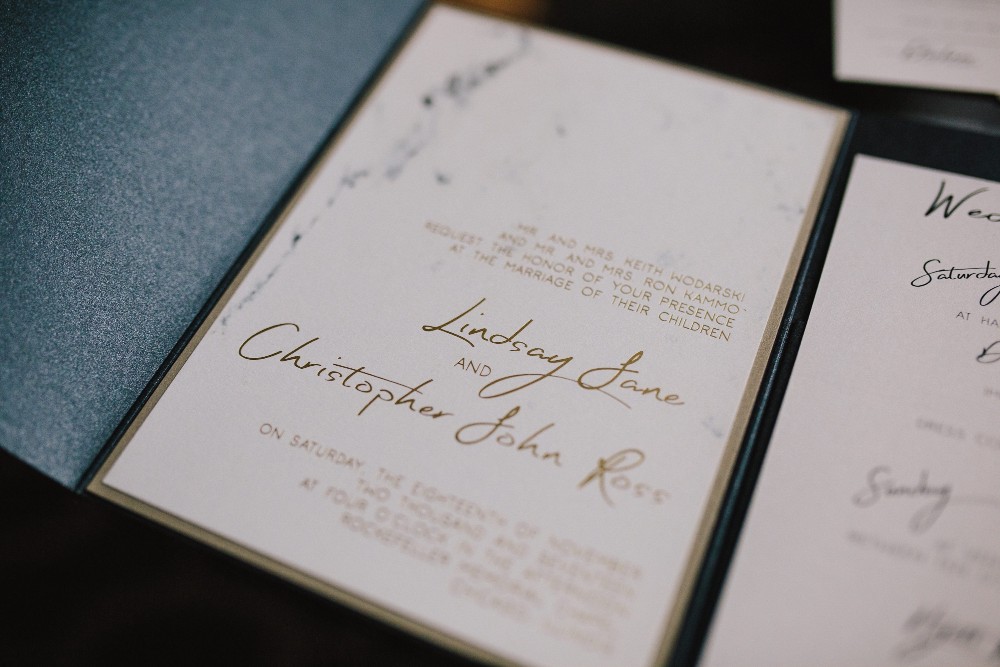 MR. AND MRS. KEITH WODARSKI
AND MR. AND MRS. RON KAMMO-
REQUEST THE HONOR OF YOUR PRESENCE
AT THE MARRIAGE OF THEIR CHILDREN
Lindsay Jane
AND
Christopher John Ross
ON SATURDAY, THE EIGHTEENTH OF NOVEMBER
TWO THOUSAND AND SEVENTEEN
AT FOUR O'CLOCK IN THE AFTERNOON
ROCKEFELLER MEMORIAL CHAPEL
CHICAGO, ILLINOIS
Wed
Saturday
AT HA
DRESS CO
Sunday